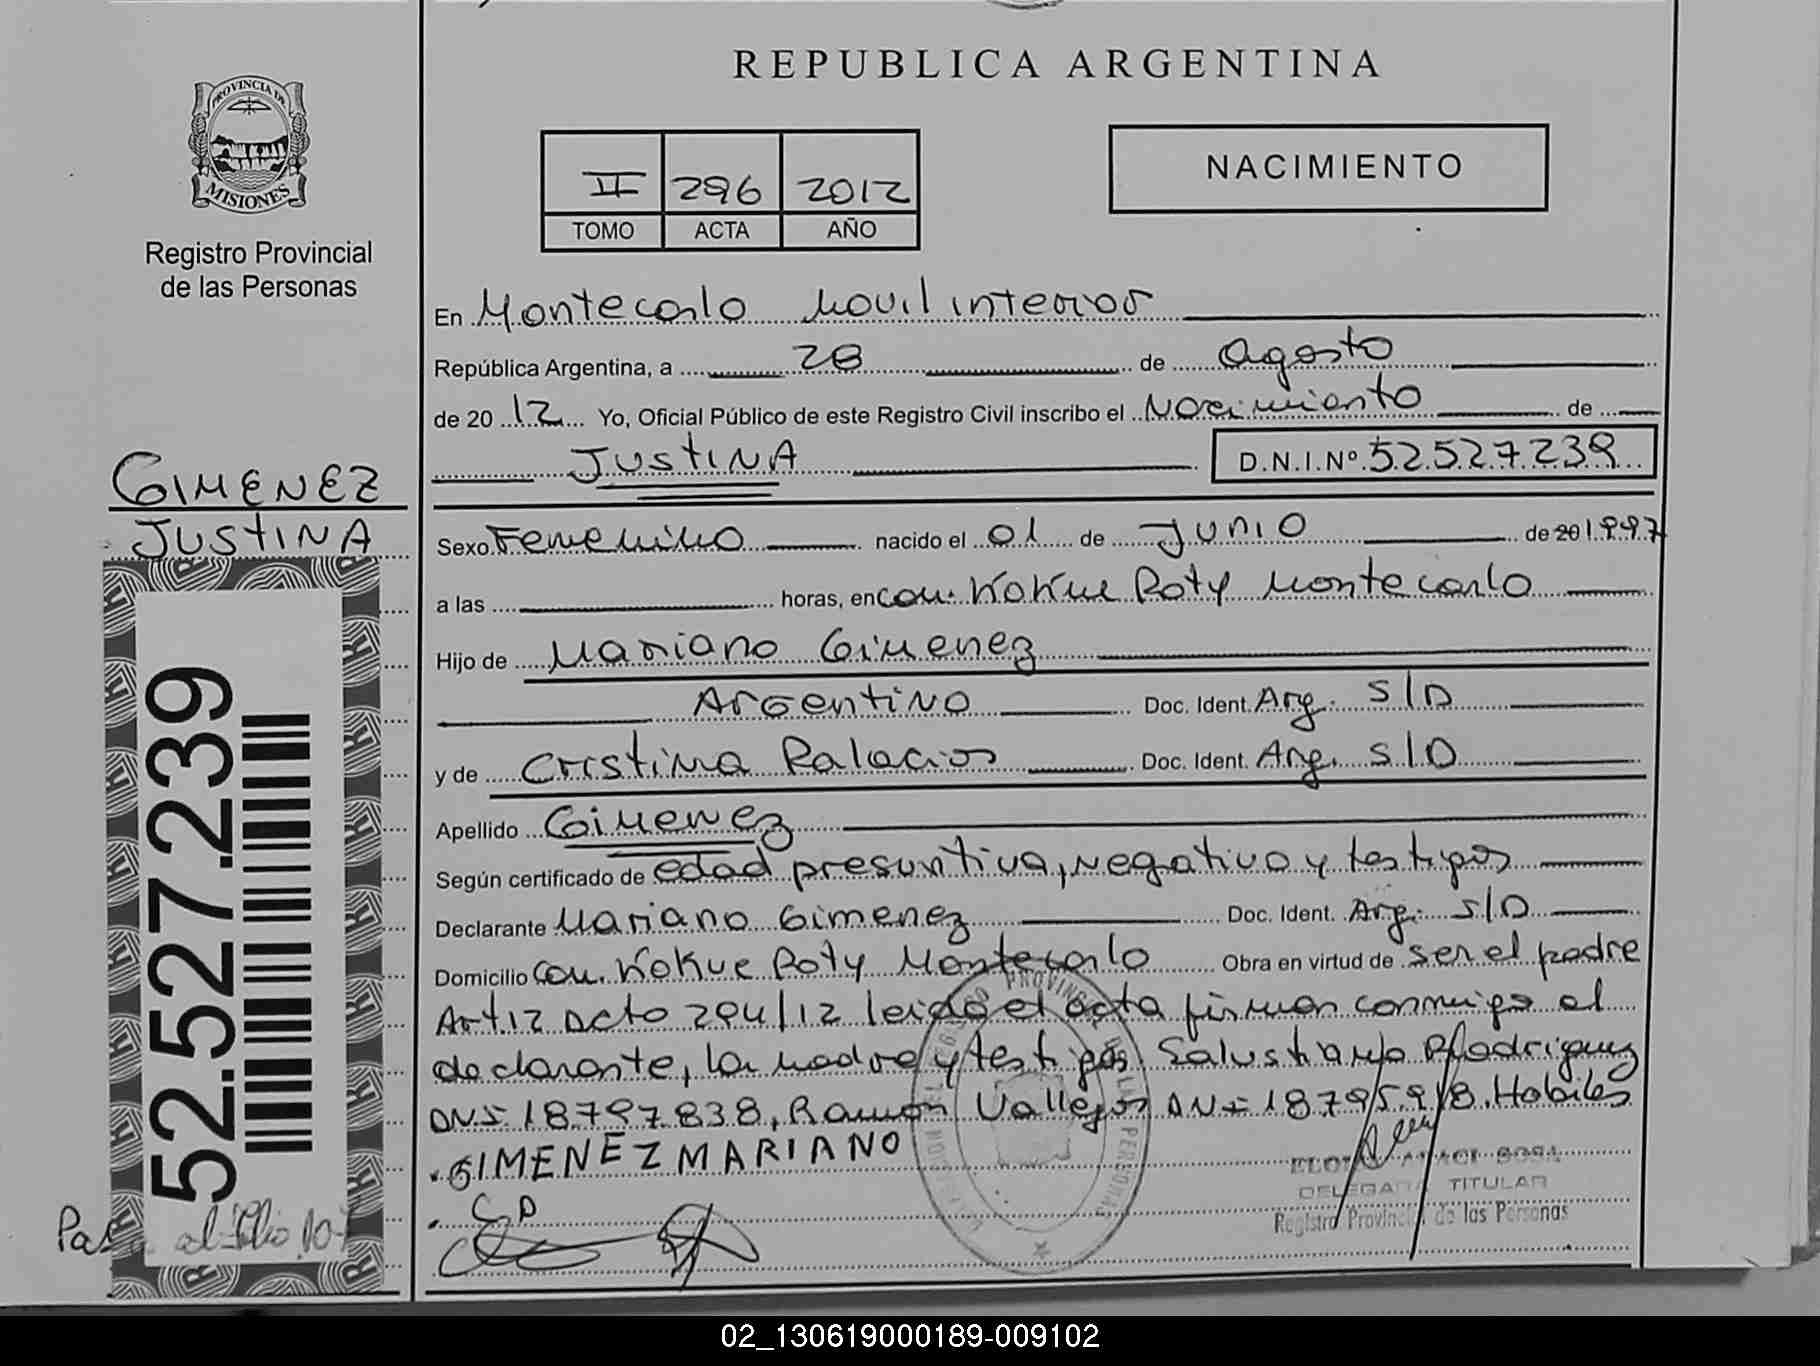 REPUBLICA ARGENTINA
PROVINCIA DE
MISIONES
Registro Provincial
de las Personas
II 296 2012
TOMO ACTA AÑO
NACIMIENTO
En Montecarlo Movil interior
República Argentina, a 28 de agosto
de 20 12 Yo, Oficial Público de este Registro Civil inscribo el Nacimiento de
JUSTINA D.N.I.Nº 52527239
GIMENEZ
JUSTINA
Sexo Femenino nacido el 01 de Junio de 20 1997
a las horas, en com. Kokue Poty Montecarlo
Hijo de Mariano Gimenez
Argentino Doc. Ident. Arg. S/D
y de Cristina Palacios Doc. Ident. Arg. S/D
Apellido Gimenez
Según certificado de edad presuntiva, negativo y testigos
Declarante Mariano Gimenez Doc. Ident. Arg. S/D
Domicilio com. Kokue Poty Montecarlo Obra en virtud de ser el padre
Art 12 Dcto 294/12 leida el acta firman conmigo el
declarante, la madre y testigos Salustiano Rodriguez
DNI 18797838, Ramón Vallejos DNI 18795918. Habiles
GIMENEZ MARIANO
CP
52.527.239
al folio 107
DELEGADA TITULAR
Registro Provincial de las Personas
02_130619000189-009102